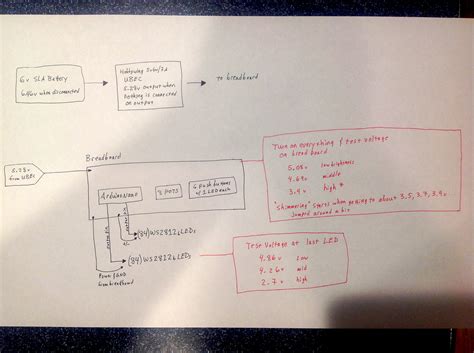 6v SLA Battery
when disconnected
Hobbywing
UBEC
5.28v output when
nothing is connected
on output
to breadboard
5.28v
from UBEC
Breadboard
Arduino Nano
3 POTS
6 push buttons
w/ 1 LED each
(84) WS2812b LEDs
(84) WS2812b LEDs
Power / GND
from breadboard
Turn on everything & test voltage
on bread board
5.08v low brightness
4.69v middle
3.9v high *
"shimmering" starts when getting to about 3.5, 3.7, 3.9v
Jumped around a bit
Test Voltage at last LED
4.86v low
4.26v mid
2.7v high